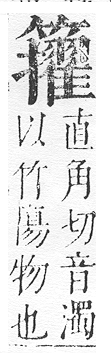 直角切音濁
以竹傷物也